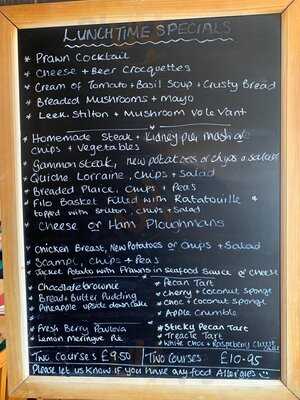 LUNCHTIME SPECIALS
* Prawn Cocktail
* Cheese + Beer Crocquettes
* Cream of Tomato + Basil Soup + Crusty Bread
* Breaded Mushrooms + mayo
* Leek, Stilton + Mushroom Vole Vant
* Homemade Steak + Kidney pie, mash or
chips + Vegetables
* Gammon steak, new potatoes or chips + salad
* Quiche Lorraine, Chips + Salad
* Breaded Plaice, Chips + Peas
* Filo Basket Filled with Ratatouille *
topped with stilton, chips + Salad
* Cheese or Ham Ploughmans
* Chicken Breast, New Potatoes or Chips + Salad
* Scampi, Chips + Peas
* Jacket Potato with Prawns in Seafood Sauce or Cheese
* Chocolate brownie
* Bread + Butter Pudding
* Pineapple upside down cake
* Pecan Tart
* Cherry + Coconut sponge
* Choc + Coconut sponge
* Apple Crumble
* Fresh Berry Pavlova
* Lemon Meringue Pie
* Sticky Pecan Tart
* Treacle Tart
* White Choc + Raspberry
Two Courses £9.50
Two Courses £10.95
Please let us know if you have any food Allergies